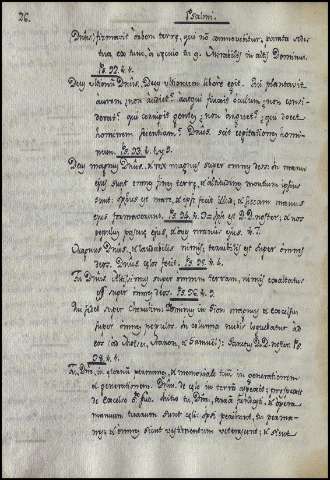 26. Psalmi.
Dñus, firmavit orbem terrę, qui nō commovebitur, parata sedes
tua ex tunc, à sęculo tu es. Mirabilis in altis Dominus.
Ps. 92. v. 4.
Deus ultionū Dñus, Deus ultionum liberè egit. Qui plantavit
aurem, non audiet? aut qui finxit oculum, non consi-
derat? qui corripit gentes, non arguet? qui docet
hominem scientiam? Dñus scit cogitationes homi-
num. Ps. 93. v.
Deus magnus Dñus, & rex magnus super omnes deos: in manu
ejus sunt omnes fines terrę, & altitudines montium ipsius
sunt: ipsius est mare, & ipse fecit illud, & siccam manus
ejus formaverunt. Ps. 94. v. Ipse est D. D. noster, & nos
populus pascuę ejus, & oves manus ejus. v. 7.
Magnus Dñus, & laudabilis nimis, terribilis est super omnes
deos. Dñus cęlos fecit. Ps. 95. v. 4.
Tu Dñus Altissimus super omnem terram, nimis exaltatus
es super omnes deos. Ps. 96. v. 9.
super Cherubim Dominus in Sion magnus, & excelsus
super omnes populos. in columna nubis loquebatur ad
eos (ad Moysen, Aaron, & Samuel): Sanctus D. D. noster. Ps.
98. v.
Tu, Dñe, in ęternū permanes, & memoriale tuū in generationem
& generationem. Dñus de cęlo in terrā aspexit; prospexit
de excelso sº suo. Initio tu, Dñe, terrā fundasti, & opera
manuum tuarum sunt cęli: ipsi peribunt, tu perma-
nes: & omnes sicut vestimentum veterascent; & sicut